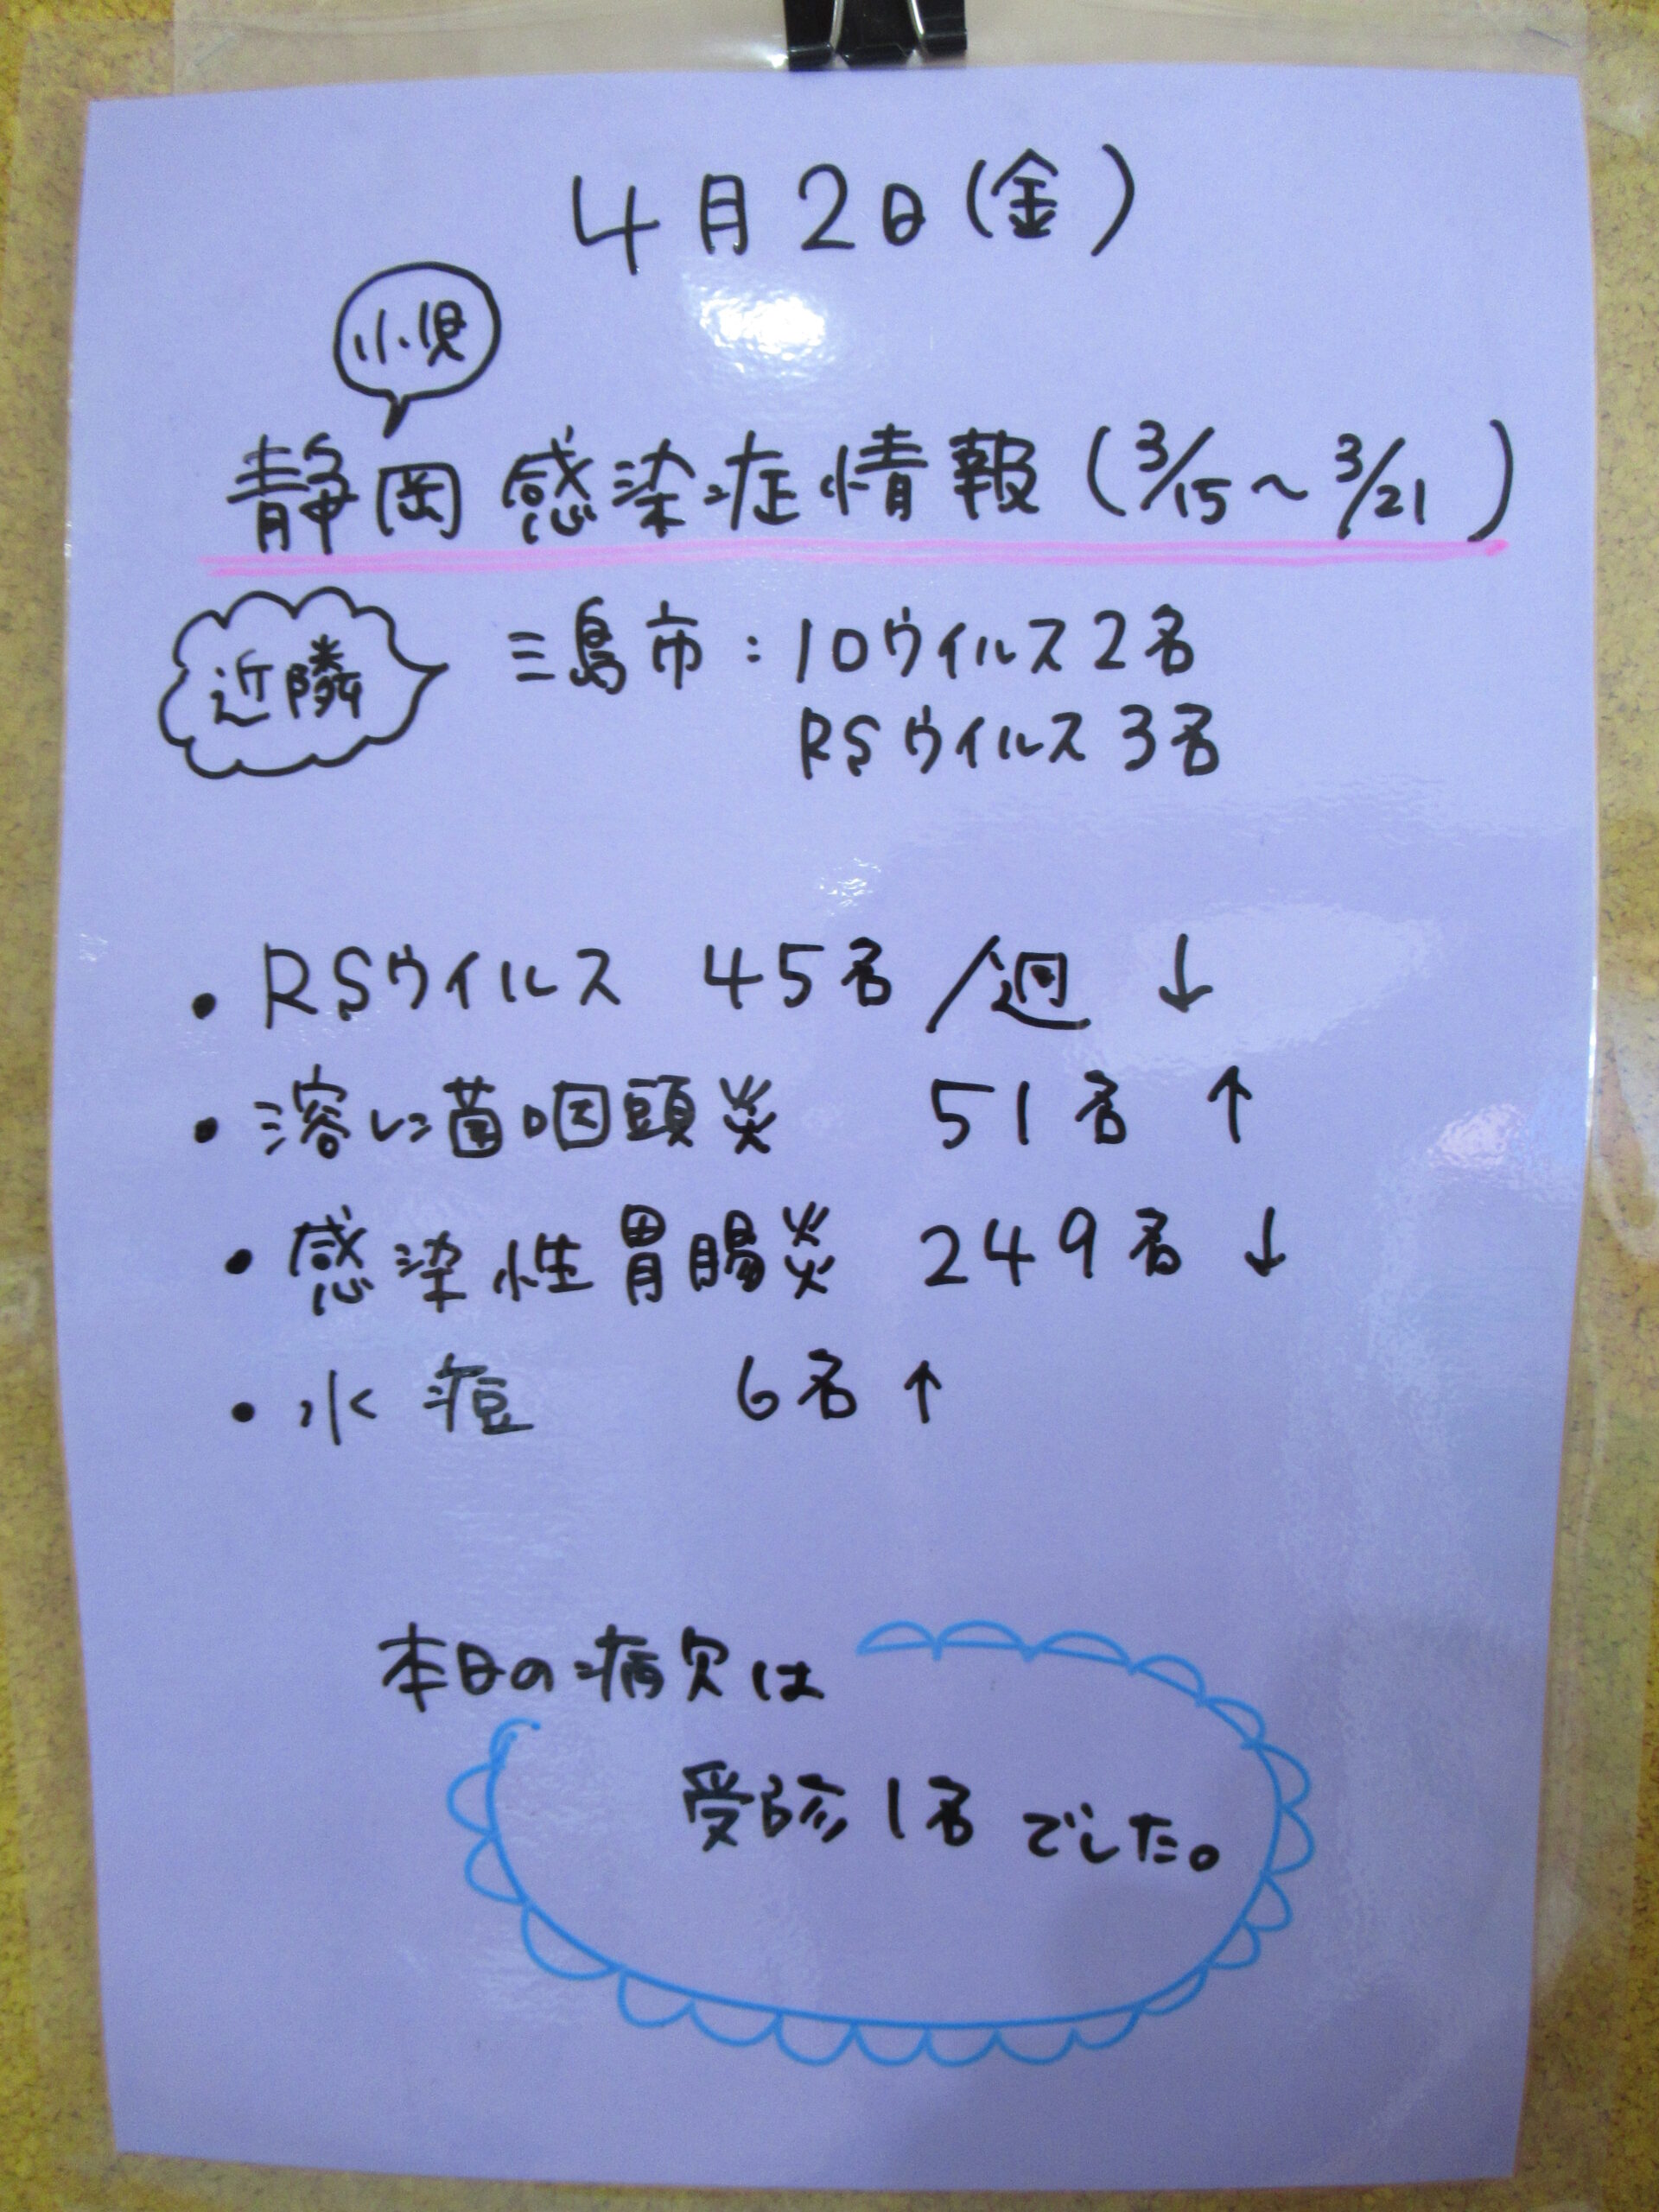 4月2日(金)
小児
静岡 感染症情報 (3/15～3/21)
近隣
三島市：10ウイルス2名
RSウイルス3名
・RSウイルス 45名/週 ↓
・溶レン菌咽頭炎 51名 ↑
・感染性胃腸炎 249名 ↓
・水痘 6名 ↑
本日の病欠は
受診1名でした。